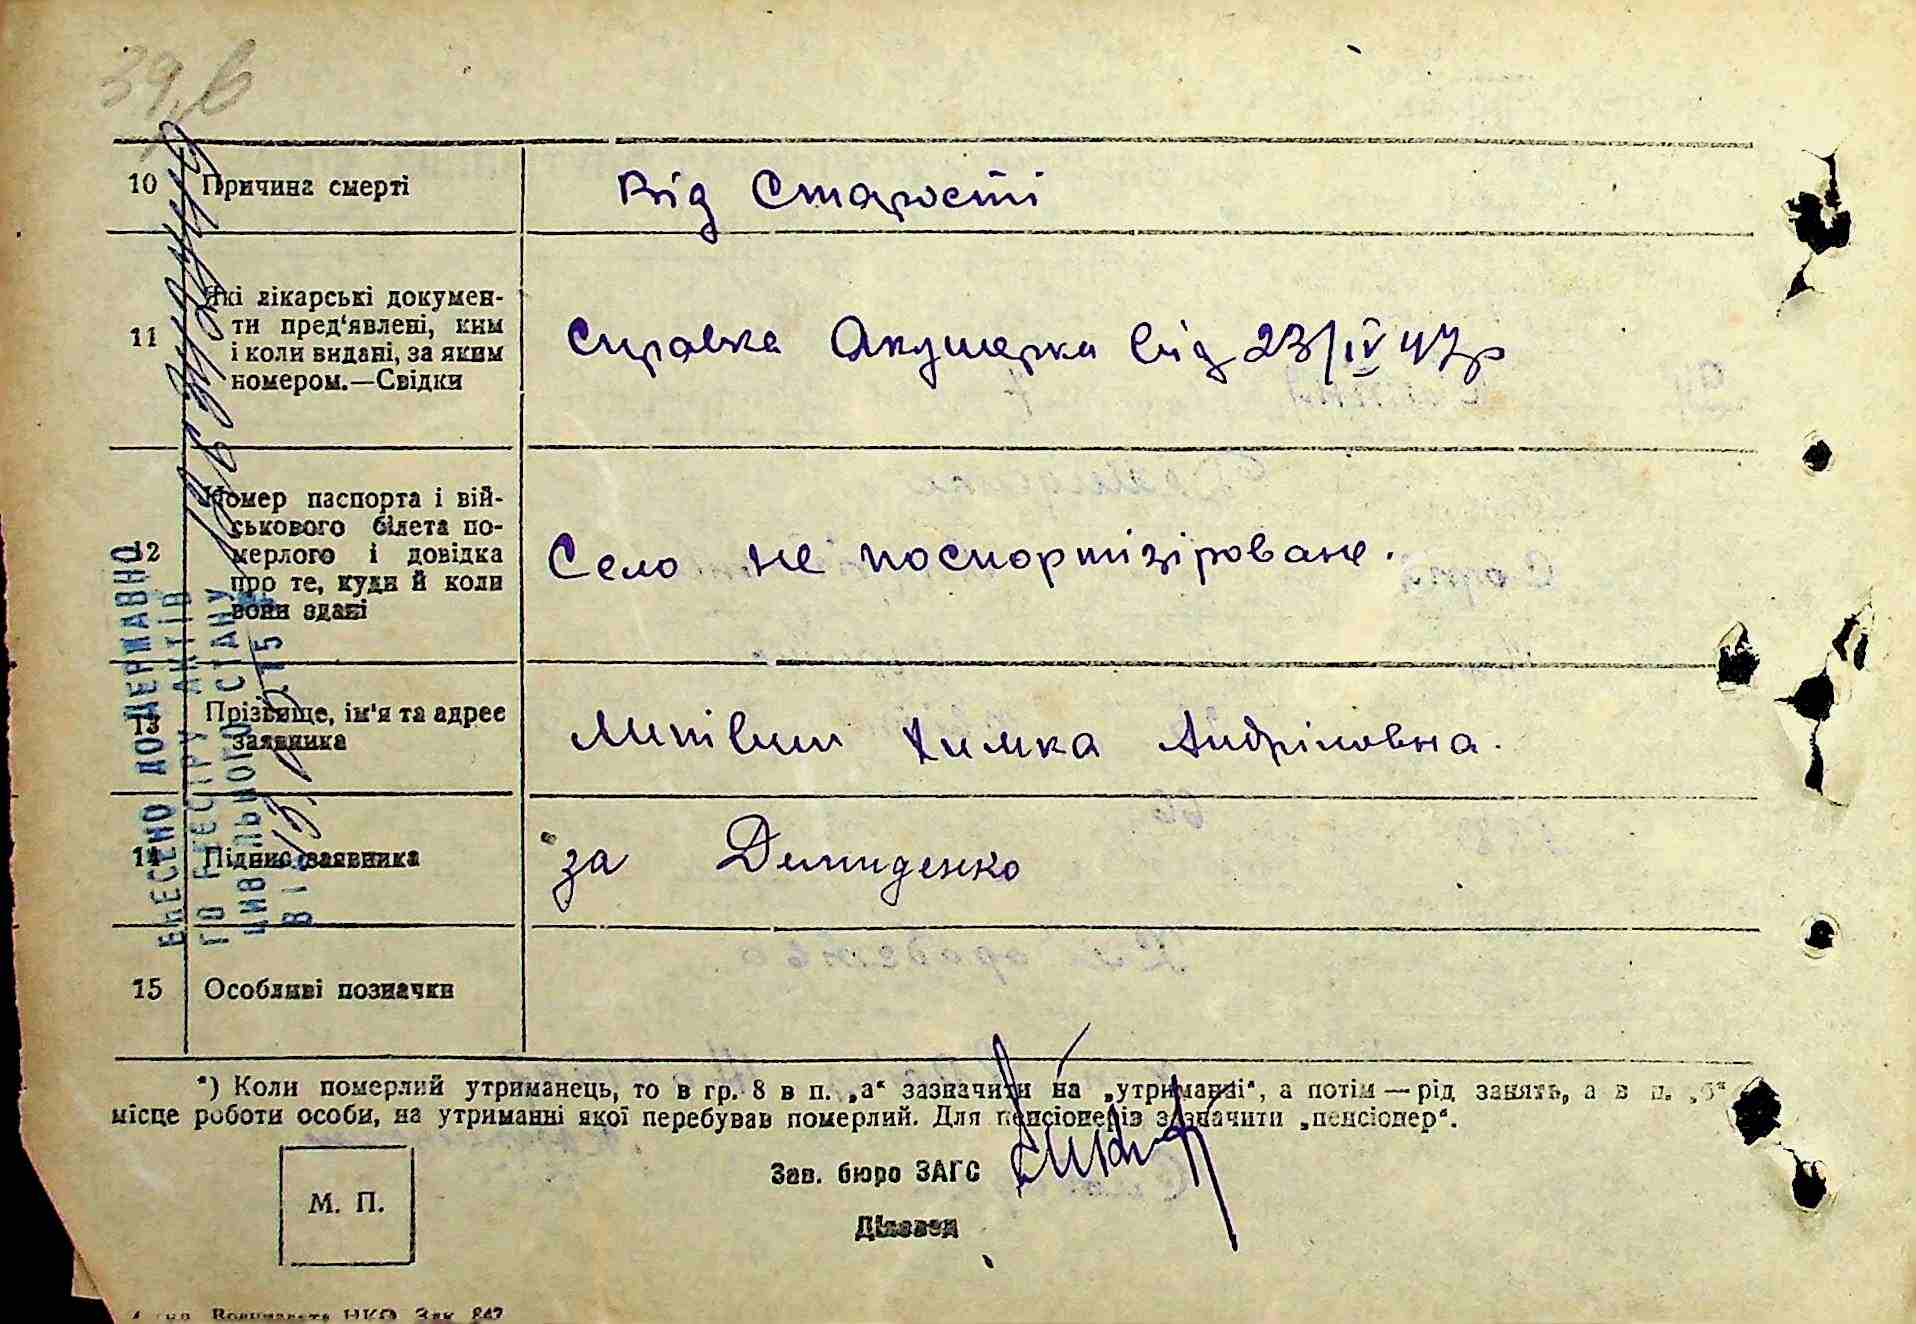 39,б
10 Причина смерті Від Старості
11 Які лікарські докумен-
ти пред'явлені, ким
і коли видані, за яким
номером.—Свідки
Справка Акушерки від 23/IV 47р
12 Номер паспорта і вій-
ськового білета по-
мерлого і довідка
про те, куди й коли
вони здані
Село не паспортізіроване.
13 Прізвище, ім'я та адрес
заявника
Литвин Химка Андріловна.
14 Підпис заявника за Демиденко
15 Особливі позначки
*) Коли померлий утриманець, то в гр. 8 в п. „а“ зазначити на „утриманні“, а потім — рід занять, а в п. „б“
місце роботи особи, на утриманні якої перебував померлий. Для пенсіонерів зазначити „пенсіонер“.
Зав. бюро ЗАГС
М. П.
Діловод
НКО Зак. 847
ВНЕСЕНО ДО ДЕРЖАВНО
ГО РЕЄСТРУ АКТІВ
ЦИВІЛЬНОГО СТАНУ
ВІД